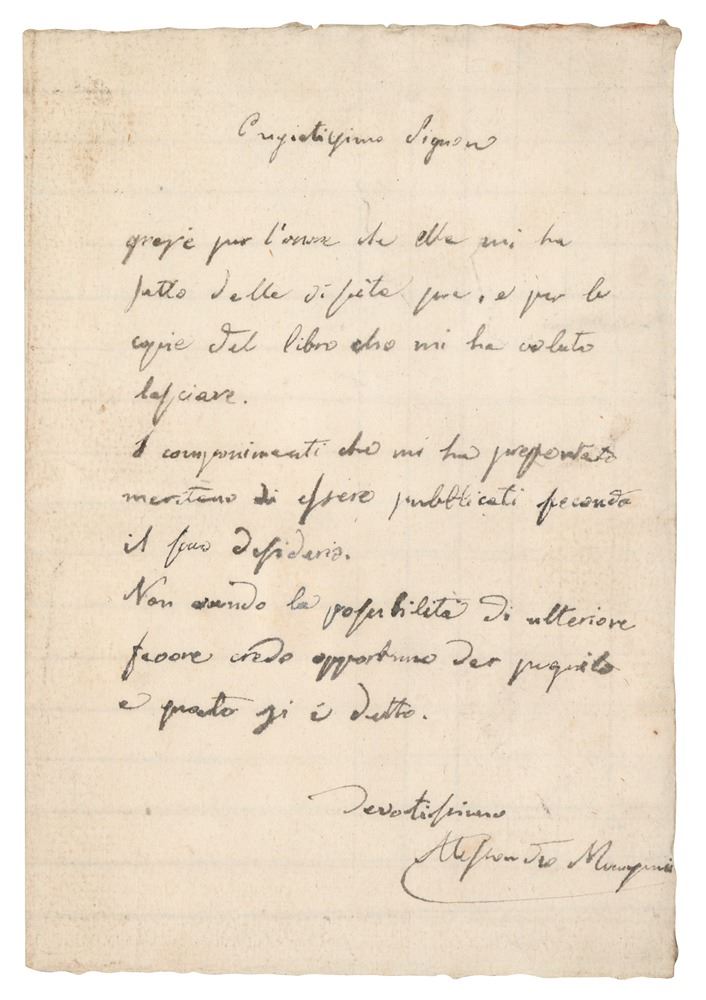 Pregiatissimo Signore
grazie per l'onore che ella mi ha
fatto delle visita sua, e per le
copie del libro che mi ha voluto
lasciare.
I componimenti che mi ha presentato
meritano di essere pubblicati secondo
il suo desiderio.
Non avendo la possibilità di ulteriore
favore credo opportuno dar seguito
a quanto si è detto.
Devotissimo
Alessandro